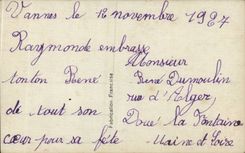 Vannes le 12 novembre 1927
Raymonde embrasse
tonton René
de tout son
cœur pour sa fête
Fabrication Française
Monsieur
René Dumoulin
rue d'Alger
Doué la Fontaine
Maine et Loire